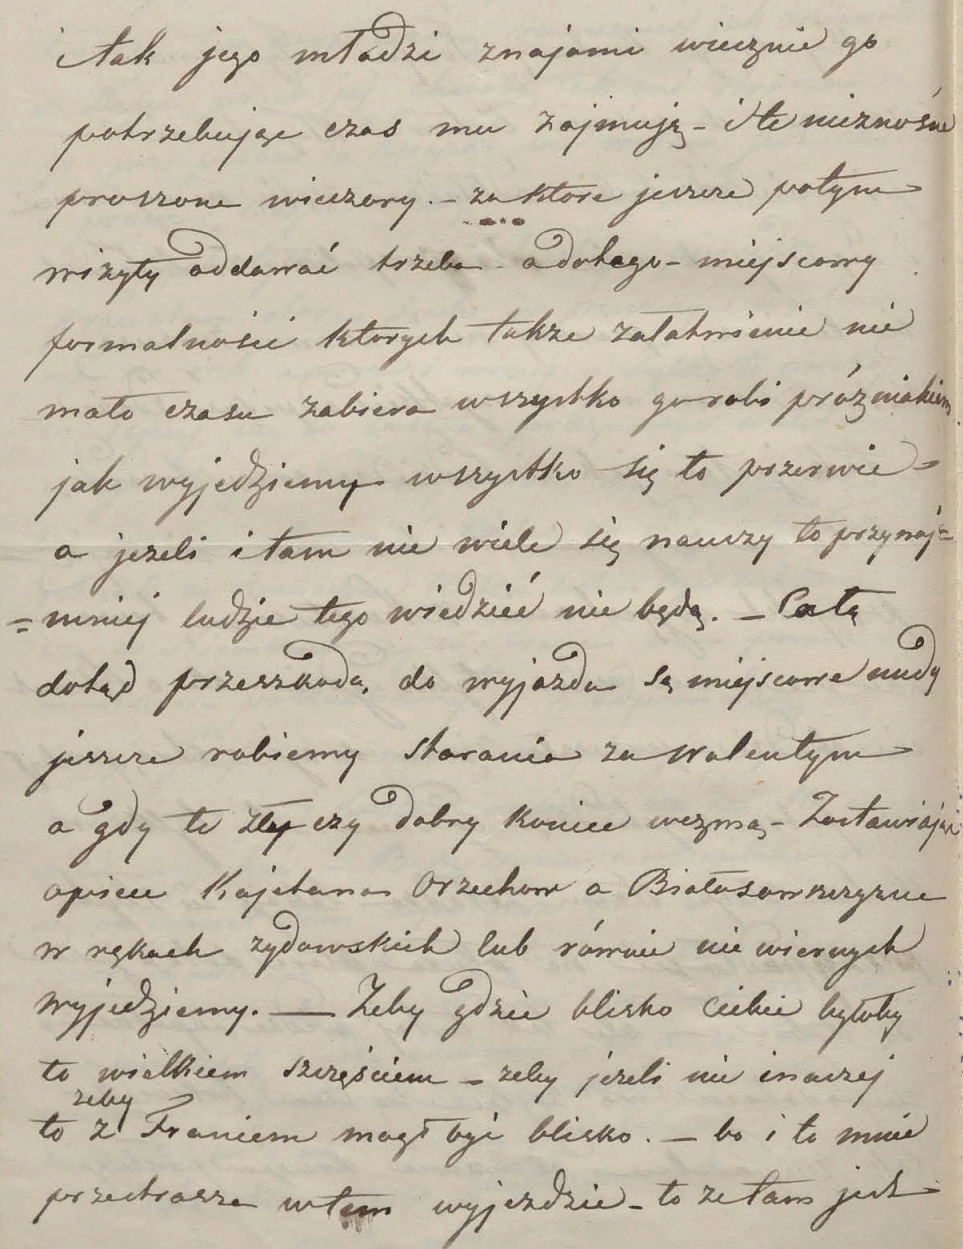 i tak jego młodzi znajomi wiecznie go
potrzebując czas mu zajmują – i te nieznośne
proszone wieczory. – za które jeszcze potym
wizyty oddawać trzeba – a do tego – miejscowy
formalności ktorych także załatwienie nie
mało czasu zabiera wszystko go robi próżniakiem.
jak wyjedziemy wszystko się to przerwie –
a jezeli i tam nie wiele się nauczy to przynaj=
=mniej ludzie tego wiedzieć nie będą. – Całą
dotąd przeszkodą, do wyjazdu są miejscowe nudy
jeszcze robiemy starania za Walentym
a gdy te zły czy dobry koniec wezmą – Zostawiając
opiece Kajetana Orzechow a Białosowszczyzne
w rękach zydowskich lub równie nie wiernych
wyjedziemy. — Zeby gdzie blisko Ciebie byłoby
to wielkiem szczęściem – zeby jezeli nie inaczej
zeby
to z Franiem mogł być blisko. – bo i to mnie
przestrasza w tem wyjezdzie – to ze tam jest